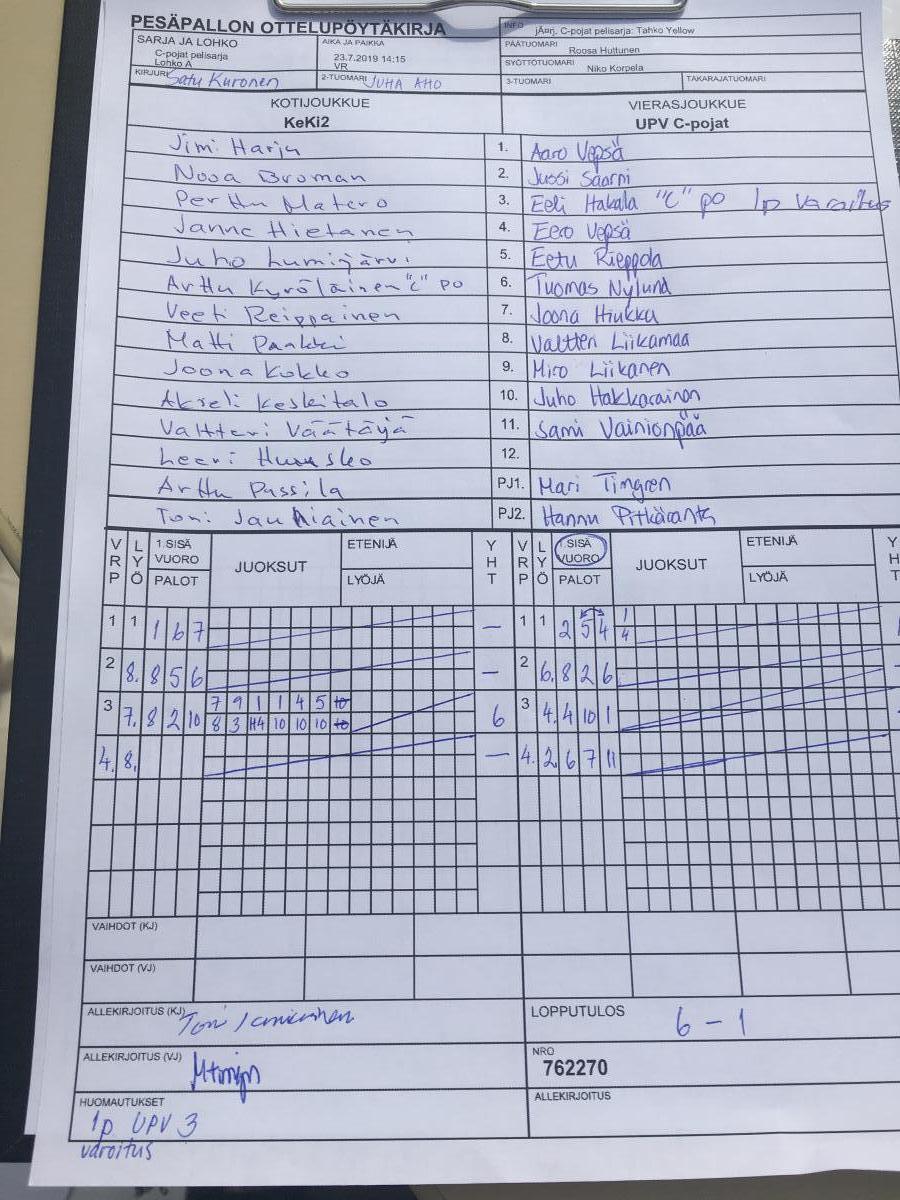 PESÄPALLON OTTELUPÖYTÄKIRJA
INFO jÄrrj. C-pojat pelisarja: Tahko Yellow
SARJA JA LOHKO
C-pojat pelisarja
Lohko A
AIKA JA PAIKKA
23.7.2019 14:15
VR
PÄÄTUOMARI Roosa Huttunen
SYÖTTÖTUOMARI Niko Korpela
KIRJURI Satu Kuronen
2-TUOMARI JUHA AHO
3-TUOMARI
TAKARAJATUOMARI
KOTIJOUKKUE
KeKi2
VIERASJOUKKUE
UPV C-pojat
Jimi Harju 1. Aaro Vepsä
Nooa Broman 2. Jussi Saarni
Perttu Matero 3. Eeli Hakala "C" po 1p varoitus
Janne Hietanen 4. Eero Vepsä
Juho Lumijärvi 5. Eetu Rieppola
Arttu Kyröläinen "C" po 6. Tuomas Nylund
Veeti Reippainen 7. Joona Hiukka
Matti Paakki 8. Valtteri Liikamaa
Joona Kokko 9. Miro Liikanen
Akseli Keskitalo 10. Juho Hakkarainen
Valtteri Väätäjä 11. Sami Vainionpää
Leevi 12.
Arttu Passila PJ1. Mari Timgren
Toni Jauhiainen PJ2. Hannu Pitkäranta
VRP LYÖ 1.SISÄ VUORO PALOT JUOKSUT ETENIJÄ LYÖJÄ YHT VRP LYÖ 1.SISÄ VUORO PALOT JUOKSUT ETENIJÄ LYÖJÄ YHT
1 1 1 6 7 — 1 1 2 5 4 1 4
2 8. 8 5 6 — 2 6. 8 2 6
3 7. 8 2 10 7 9 1 1 4 5 10 6 3 4. 4 10 1
8 3 H4 10 10 10 10
4. 8. — 4. 2 6 7 11
VAIHDOT (KJ)
VAIHDOT (VJ)
ALLEKIRJOITUS (KJ) Toni
LOPPUTULOS 6 - 1
ALLEKIRJOITUS (VJ)
NRO
762270
HUOMAUTUKSET
1p UPV 3
varoitus
ALLEKIRJOITUS